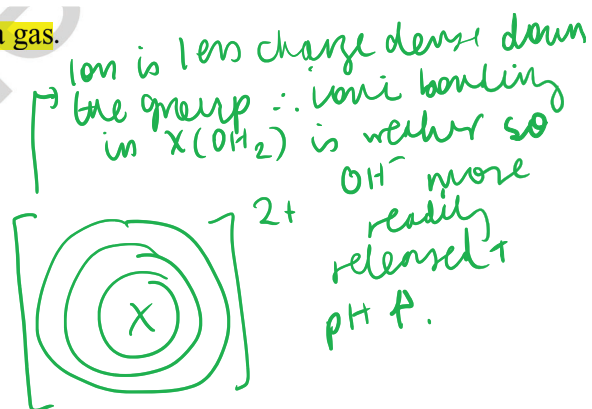 a gas.
Ion is less charge dense down
the group ∴ ionic bonding
in X(OH₂) is weaker so
OH⁻ more
readily
released +
pH ↑.
2+
X